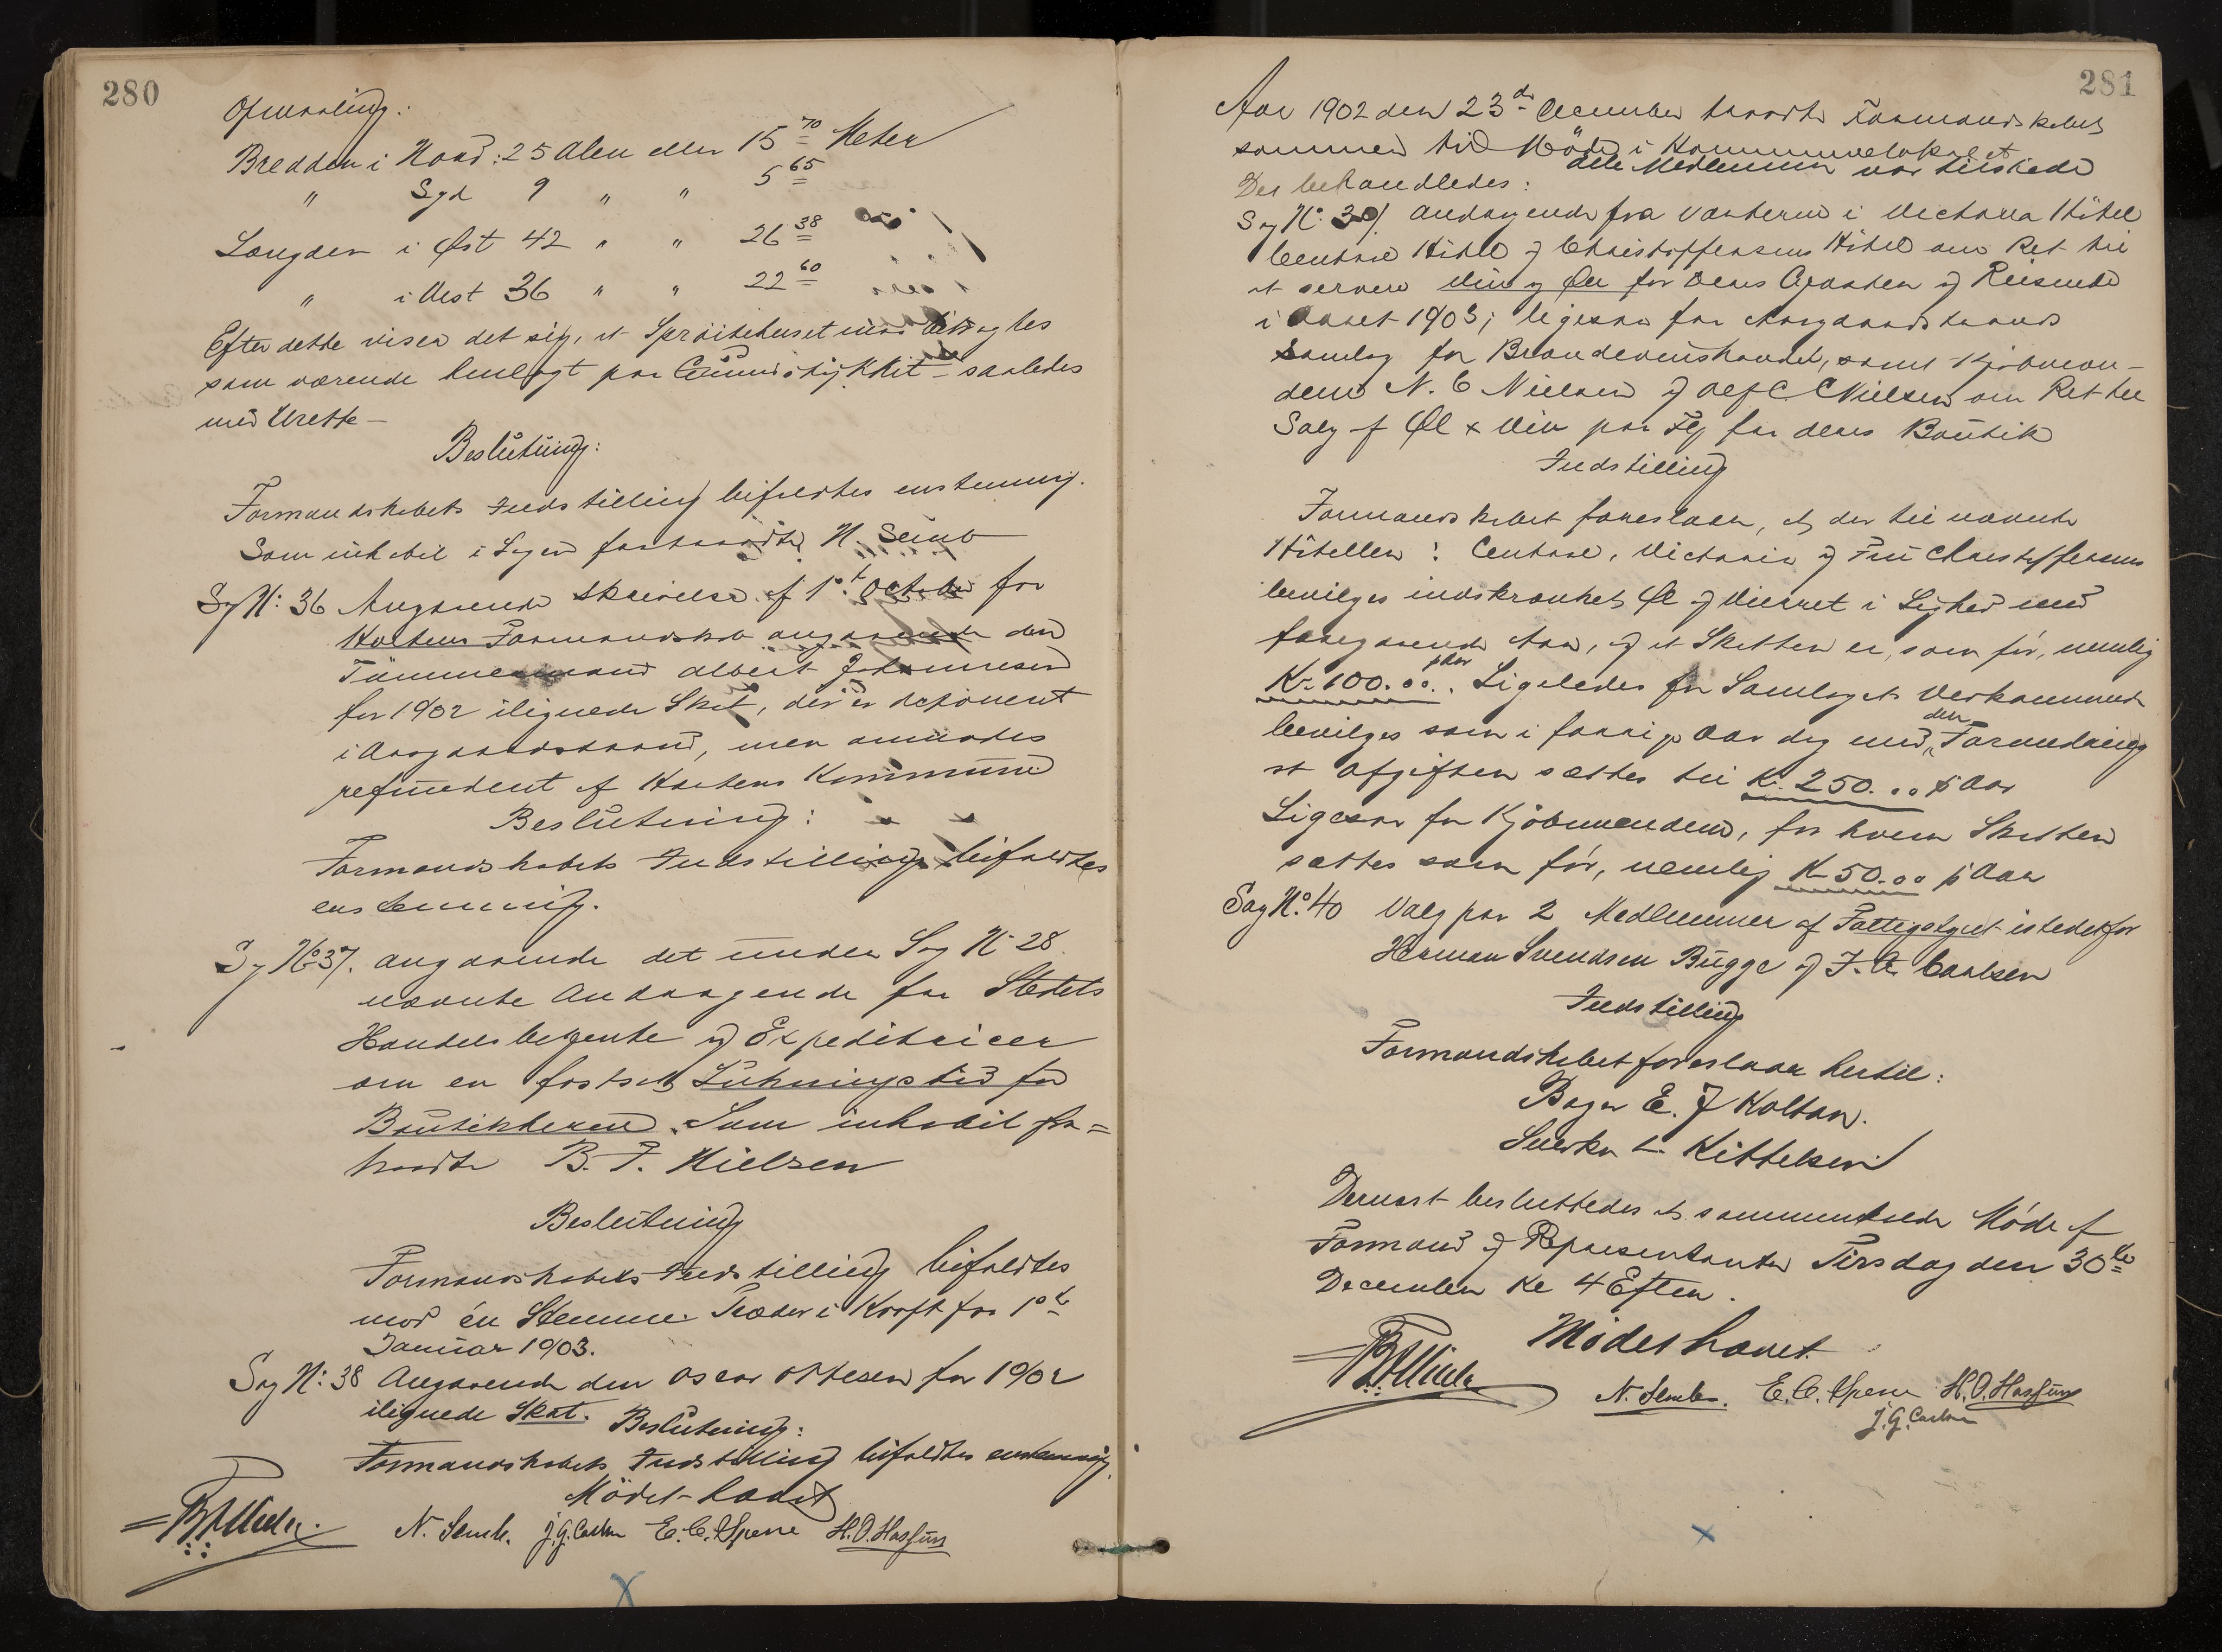 280
Opmaaling:
Bredden i Nord: 25 Alen eller 15 70 Meter
" Syd 9 " " 5 65
Længden i Øst 42 " " 26 38
" i Vest 36 " " 22 60
Efter dette viser det sig, at Sprøitehuset maa
som værende henlagt paa Grundstykket saaledes
med Urette —
Beslutning:
Formandskabets Indstilling bifaldtes enstemmig.
Som inhabil i Sagen fratraadte N. Semb
Sag No: 36 Angaaende Skrivelse af 1ste October fra
Holtens Formandskab angaaende den
Tømmermand Albert Johannesen
for 1902 ilignede Skat, der er deponeret
i Aasgaardstrand, men
refunderet af Holtens Kommune
Beslutning:
Formandskabets Indstilling bifaldtes
enstemmig.
Sag No 37. angaaende det under Sag No 28
nævnte Andragende fra Stedets
Handelsbetjente og Expeditricer
om en fastsat Lukningstid for
Boutikkerne. Som inhabil fra=
traadte B. F. Nielsen
Beslutning
Formandskabets Indstilling bifaldtes
mod én Stemme. Træder i Kraft fra 1ste
Januar 1903.
Sag No: 38 Angaaende den Oscar Ottesen for 1902
ilignede Skat. Beslutning:
Formandskabets Indstilling bifaldtes enstemmig.
Mödet hævet
N. Semb. J.G. Carlsen E.C. H.O.
281
Aar 1902 den 23de December traadte Formandskabet
sammen til Möde i Kommunelokalet
alle Medlemmer var tilstede
Der behandledes:
Sag No. 39. Andragende fra Værterne i Victoria Hôtel
Central Hôtel og Christoffersens Hôtel om Ret til
at servere Vin og Øl for deres Gjæster og Reisende
i Aaret 1903; ligesaa fra Aasgaardstrands
Samlag for Brændevinshandel, samt Kjöbmæn-
dene N. C Nielsen og C Nielsen om Ret til
Salg af Øl & Vin paa Flg fra deres Boutik
Indstilling
Formandskabet foreslaar, at der til nævnte
Hôteller: Central, Victoria og Fru Christoffersens
bevilges indskrænket Øl og Vinret i Lighed med
foregaaende Aar, og at Skatten er, som før, nemlig
Kr. 100.00. Ligeledes for Samlagets Vedkommende
bevilges som i forrige Aar dog med den Forandring
at Afgiften sættes til Kr. 250.00 p Aar
Ligesaa for Kjöbmændene, for hvem Skatten
sættes som før, nemlig Kr 50.00 p Aar
Sag No. 40 Valg paa 2 Medlemmer af Fattigstyret istedetfor
Herman Svendsen Bugge og J. G. Carlsen
Indstilling
Formandskabet foreslaar hertil:
Bager E. J Holtan.
Snedker L. Kittelsen
Dernæst besluttedes at sammenkalde Möde af
Formand og Repræsentanter Tirsdag den 30te
December Kl 4 Efterm.
Mödet hævet.
N. Semb. E.C. H.O.
J.G. Carlsen